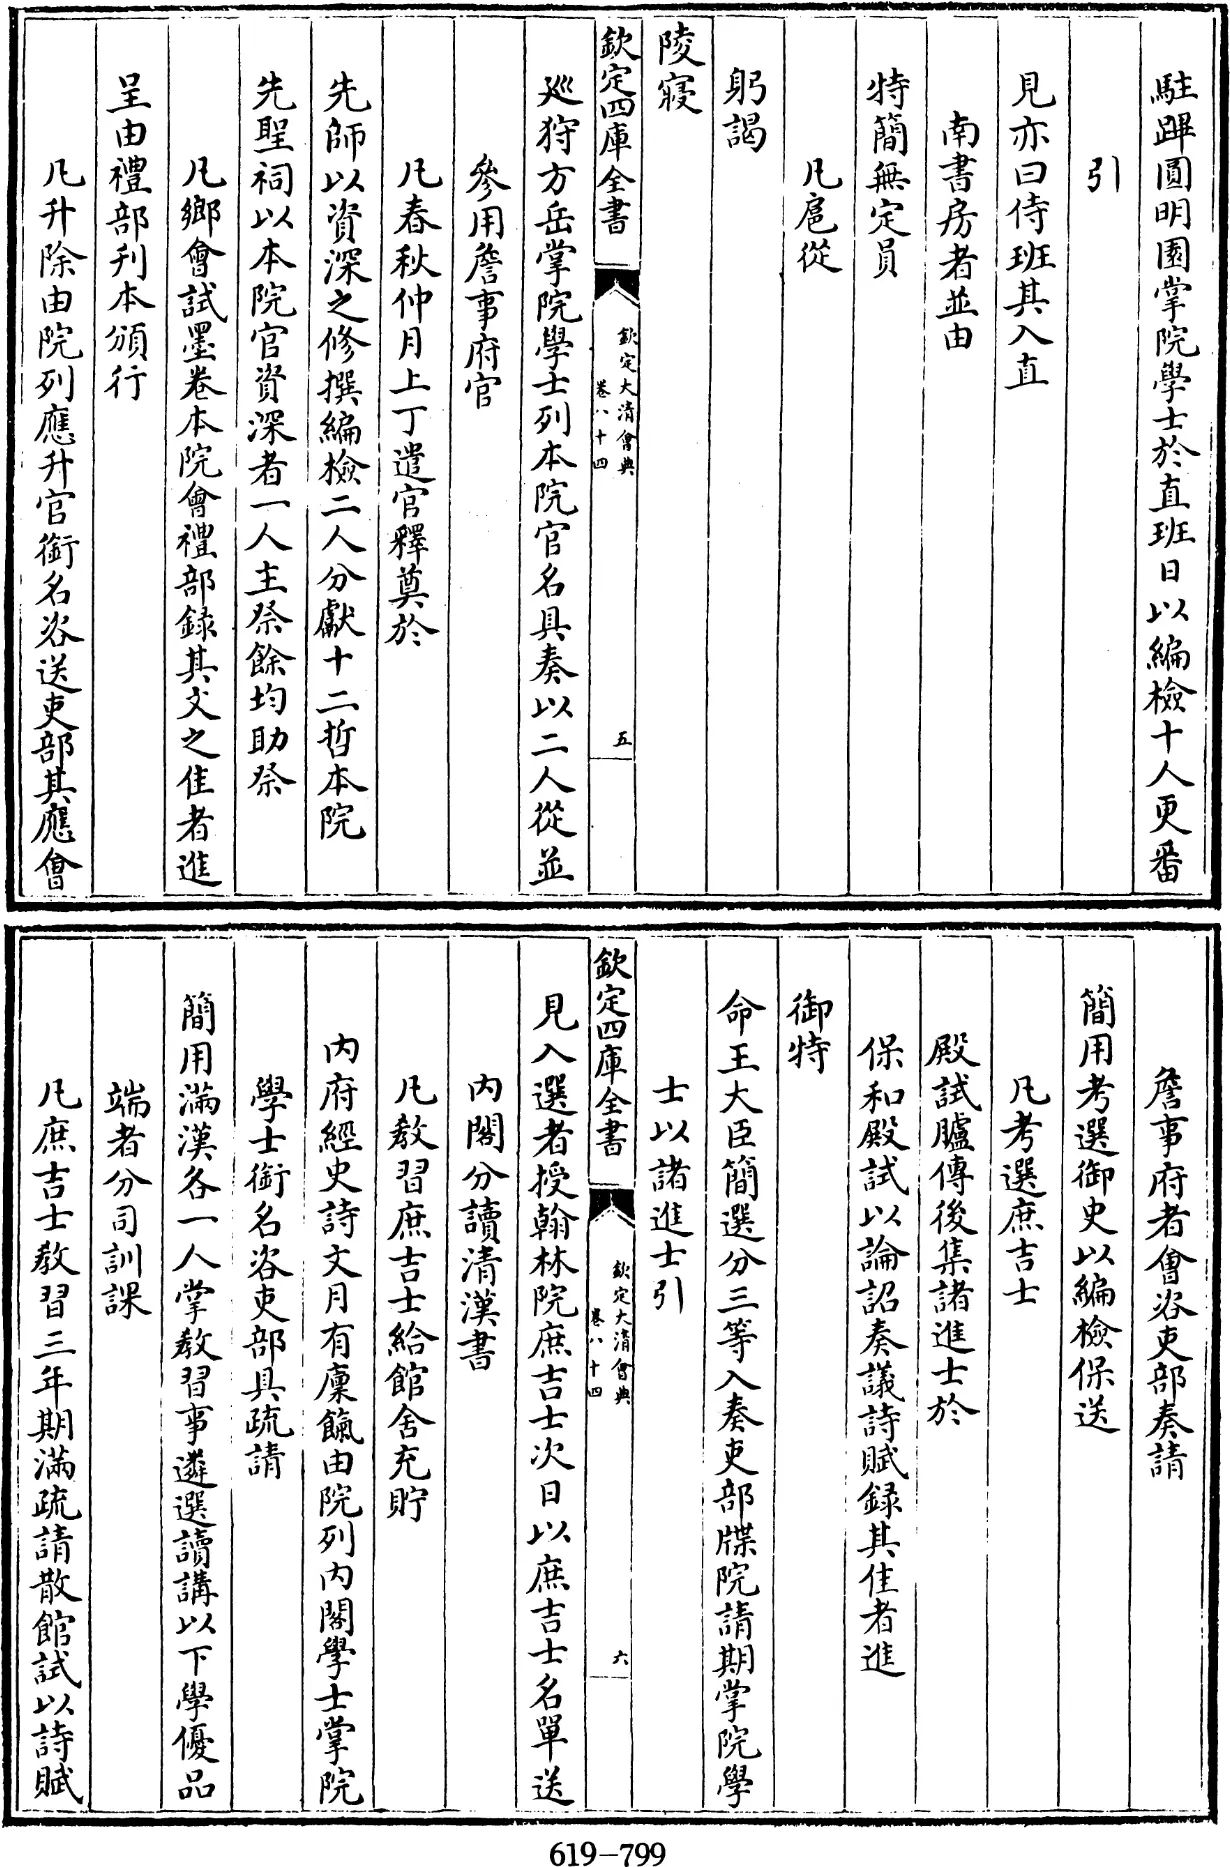 駐蹕圓明園掌院學士於直班日以編檢十人更番
引
見亦曰侍班其入直
南書房者並由
特簡無定員
凡扈從
躬謁
陵寢
欽定四庫全書
欽定大清會典
卷八十四
五
廵狩方岳掌院學士列本院官名具奏以二人從並
參用詹事府官
凡春秋仲月上丁遣官釋奠於
先師以資深之修撰編檢二人分獻十二哲本院
先聖祠以本院官資深者一人主祭餘均助祭
凡鄉會試墨卷本院會禮部録其文之佳者進
呈由禮部刋本頒行
凡升除由院列應升官銜名咨送吏部其應會
詹事府者會咨吏部奏請
簡用考選御史以編檢保送
凡考選庶吉士
殿試臚傳後集諸進士於
保和殿試以論詔奏議詩賦録其佳者進
御特
命王大臣簡選分三等入奏吏部牒院請期掌院學
士以諸進士引
欽定四庫全書
欽定大清會典
卷八十四
六
見入選者授翰林院庶吉士次日以庶吉士名單送
内閣分讀清漢書
凡教習庶吉士給館舍充貯
内府經史詩文月有廩餼由院列内閣學士掌院
學士銜名咨吏部具疏請
簡用滿漢各一人掌教習事遴選讀講以下學優品
端者分司訓課
凡庶吉士教習三年期滿疏請散館試以詩賦
619-799